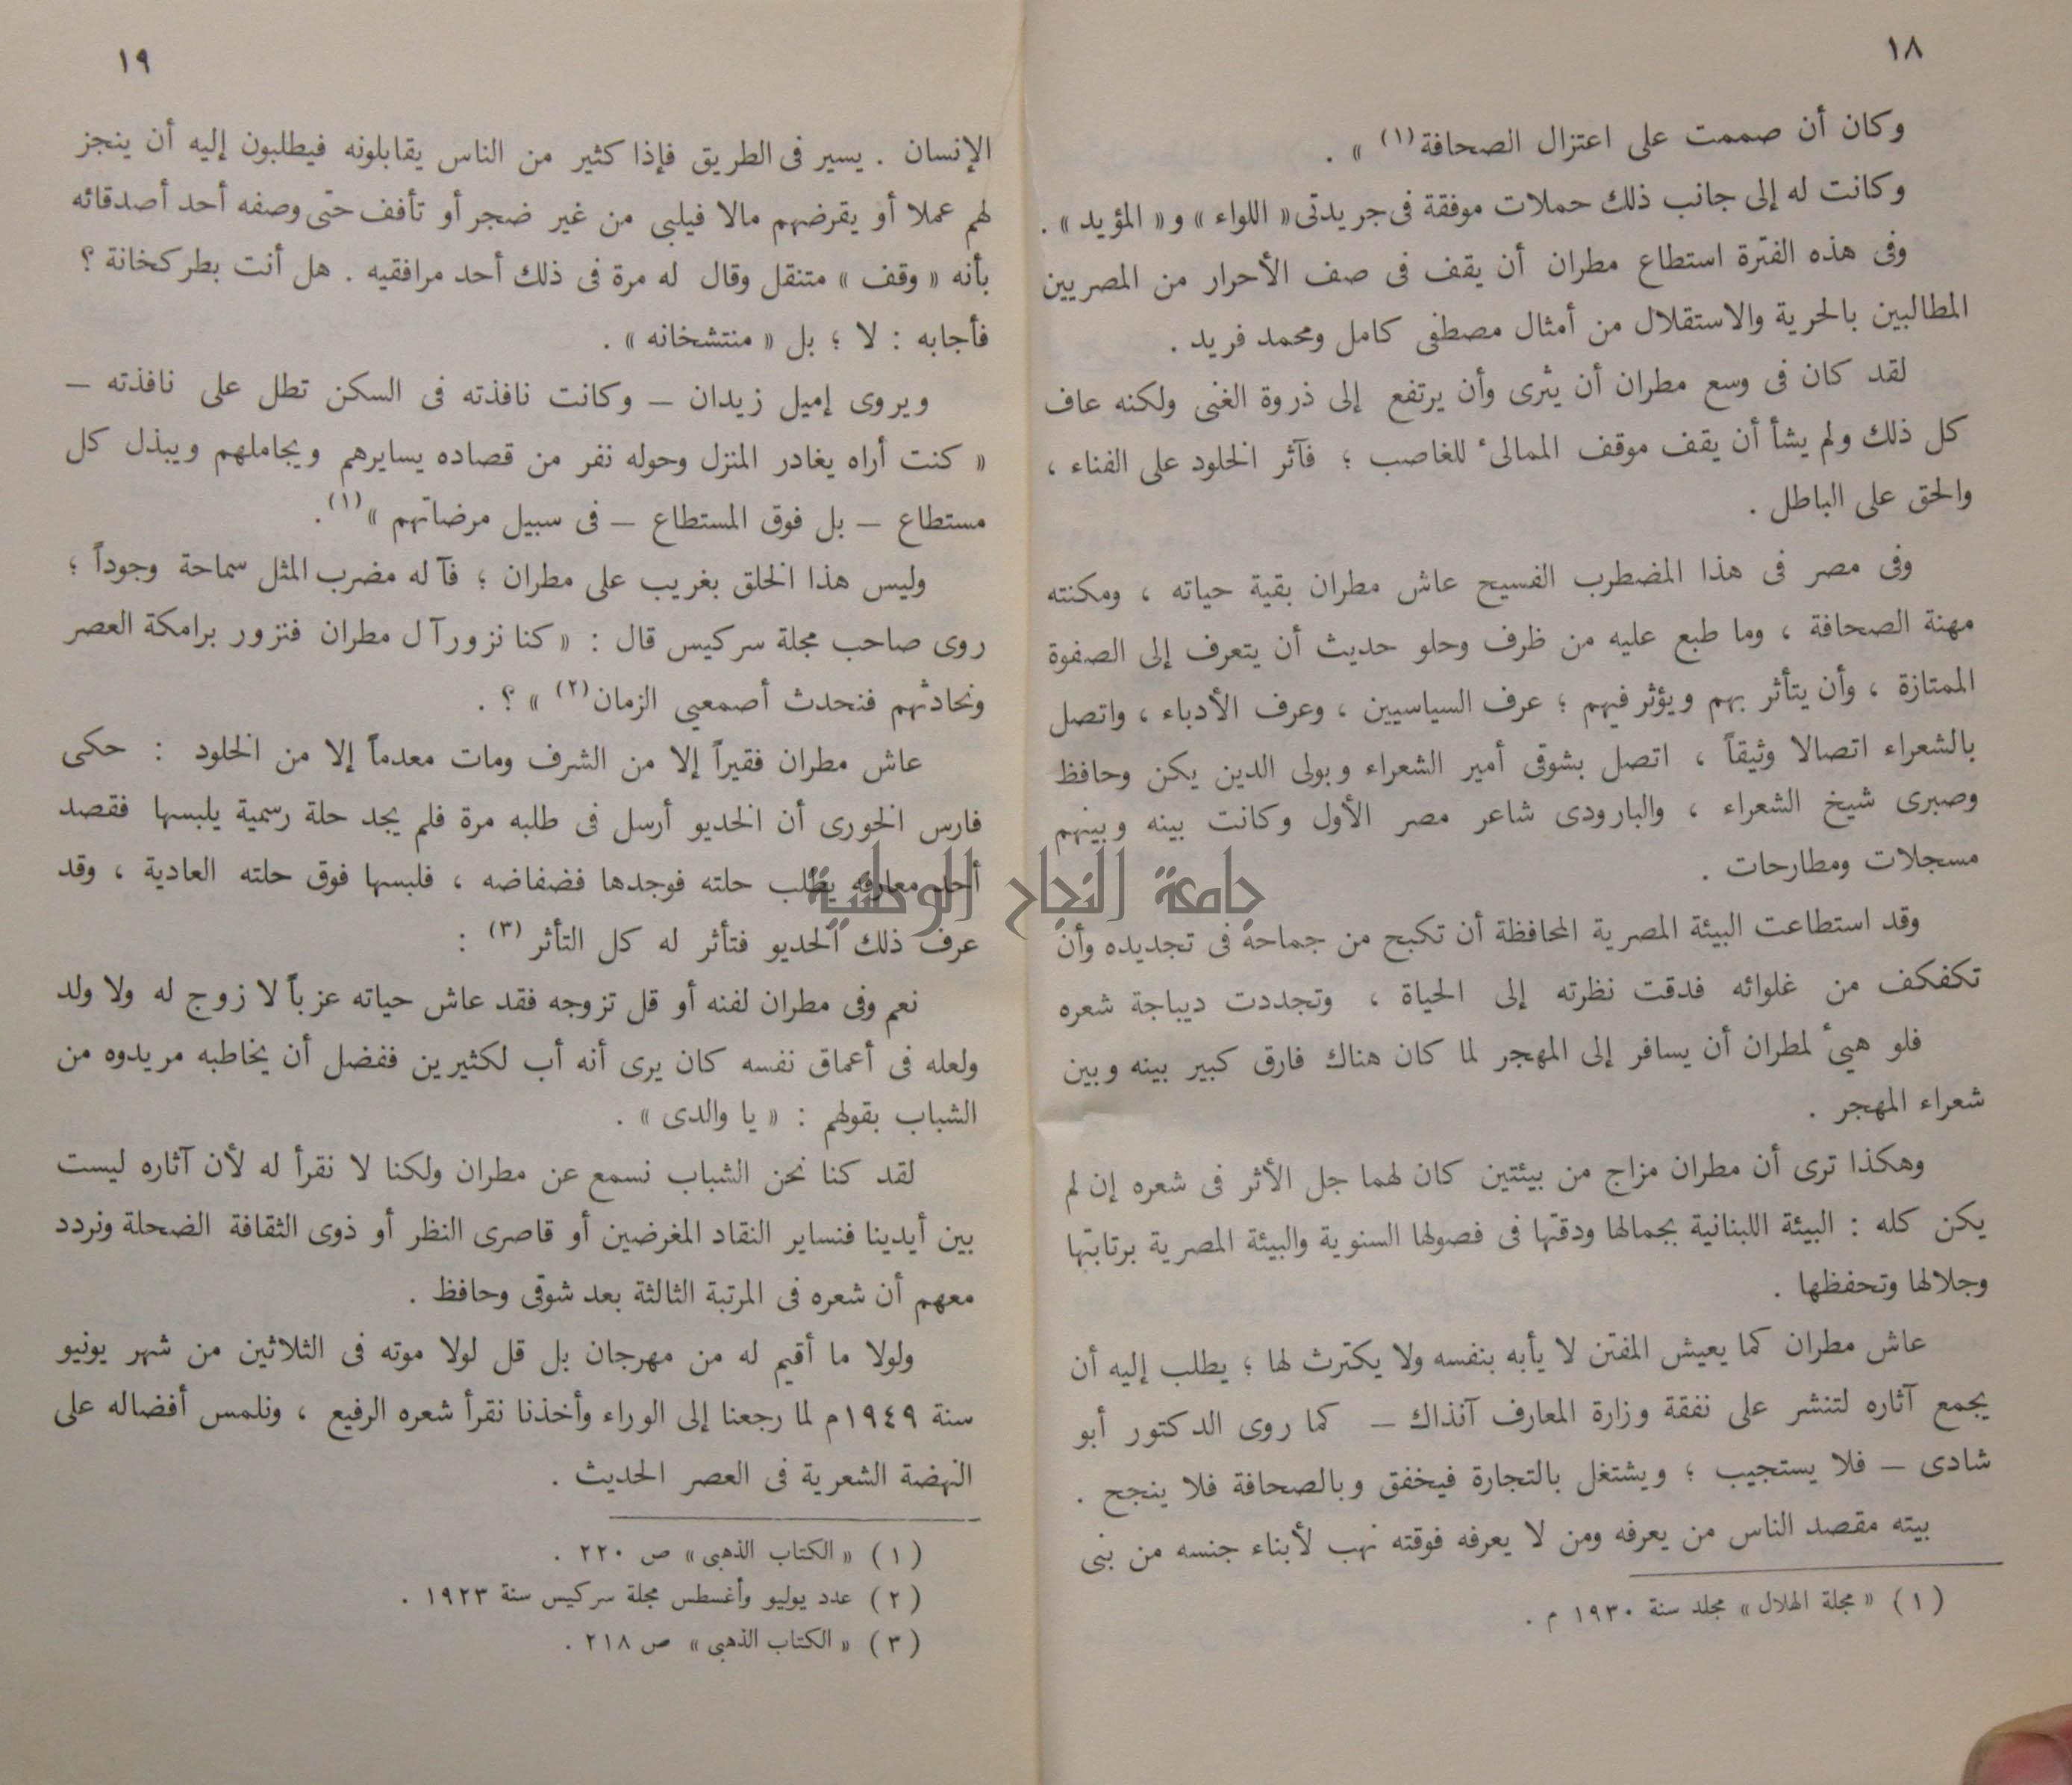 ١٨
وكان أن صممت على اعتزال الصحافة(١) » .
وكانت له إلى جانب ذلك حملات موفقة فى جريدتى « اللواء » و « المؤيد » .
وفى هذه الفترة استطاع مطران أن يقف فى صف الأحرار من المصريين
المطالبين بالحرية والاستقلال من أمثال مصطفى كامل ومحمد فريد .
لقد كان فى وسع مطران أن يثرى وأن يرتفع إلى ذروة الغنى ولكنه عاف
كل ذلك ولم يشأ أن يقف موقف الممالئ للغاصب ؛ فآثر الخلود على الفناء ،
والحق على الباطل .
وفى مصر فى هذا المضطرب الفسيح عاش مطران بقية حياته ، ومكنته
مهنة الصحافة ، وما طبع عليه من ظرف وحلو حديث أن يتعرف إلى الصفوة
الممتازة ، وأن يتأثر بهم ويؤثر فيهم ؛ عرف السياسيين ، وعرف الأدباء ، واتصل
بالشعراء اتصالا وثيقاً ، اتصل بشوقى أمير الشعراء وبولى الدين يكن وحافظ
وصبرى شيخ الشعراء ، والبارودى شاعر مصر الأول وكانت بينه وبينهم
مسجلات ومطارحات .
وقد استطاعت البيئة المصرية المحافظة أن تكبح من جماحه فى تجديده وأن
تكفكف من غلوائه فدقت نظرته إلى الحياة ، وتجددت ديباجة شعره
فلو هيئ لمطران أن يسافر إلى المهجر لما كان هناك فارق كبير بينه وبين
شعراء المهجر .
وهكذا ترى أن مطران مزاج من بيئتين كان لهما جل الأثر فى شعره إن لم
يكن كله : البيئة اللبنانية بجمالها ودقتها فى فصولها السنوية والبيئة المصرية برتابتها
وجلالها وتحفظها .
عاش مطران كما يعيش المفتن لا يأبه بنفسه ولا يكترث لها ؛ يطلب إليه أن
يجمع آثاره لتنشر على نفقة وزارة المعارف آنذاك — كما روى الدكتور أبو
شادى — فلا يستجيب ؛ ويشتغل بالتجارة فيخفق وبالصحافة فلا ينجح .
بيته مقصد الناس من يعرفه ومن لا يعرفه فوقته نهب لأبناء جنسه من بنى
(١) « مجلة الهلال » مجلد سنة ١٩٣٠ م .
١٩
الإنسان . يسير فى الطريق فإذا كثير من الناس يقابلونه فيطلبون إليه أن ينجز
لهم عملا أو يقرضهم مالا فيلبى من غير ضجر أو تأفف حتى وصفه أحد أصدقائه
بأنه « وقف » متنقل وقال له مرة فى ذلك أحد مرافقيه . هل أنت بطركخانة ؟
فأجابه : لا ؛ بل « منتشخانه » .
ويروى إميل زيدان — وكانت نافذته فى السكن تطل على نافذته —
« كنت أراه يغادر المنزل وحوله نفر من قصاده يسايرهم ويجاملهم ويبذل كل
مستطاع — بل فوق المستطاع — فى سبيل مرضاتهم »(١).
وليس هذا الخلق بغريب على مطران ؛ فآله مضرب المثل سماحة وجوداً ؛
روى صاحب مجلة سركيس قال : « كنا نزور آل مطران فنزور برامكة العصر
ونحادثهم فنحدث أصمعي الزمان(٢) » ؟ .
عاش مطران فقيراً إلا من الشرف ومات معدماً إلا من الخلود : حكى
فارس الخورى أن الخديو أرسل فى طلبه مرة فلم يجد حلة رسمية يلبسها فقصد
أحد معارفه يطلب حلته فوجدها فضفاضه ، فلبسها فوق حلته العادية ، وقد
عرف ذلك الخديو فتأثر له كل التأثر (٣) :
نعم وفى مطران لفنه أو قل تزوجه فقد عاش حياته عزباً لا زوج له ولا ولد
ولعله فى أعماق نفسه كان يرى أنه أب لكثيرين ففضل أن يخاطبه مريدوه من
الشباب بقولهم : « يا والدى » .
لقد كنا نحن الشباب نسمع عن مطران ولكنا لا نقرأ له لأن آثاره ليست
بين أيدينا فنساير النقاد المغرضين أو قاصرى النظر أو ذوى الثقافة الضحلة ونردد
معهم أن شعره فى المرتبة الثالثة بعد شوقى وحافظ .
ولولا ما أقيم له من مهرجان بل قل لولا موته فى الثلاثين من شهر يونيو
سنة ١٩٤٩م لما رجعنا إلى الوراء وأخذنا نقرأ شعره الرفيع ، ونلمس أفضاله على
النهضة الشعرية فى العصر الحديث .
(١) « الكتاب الذهبى » ص ٢٢٠ .
(٢) عدد يوليو وأغسطس مجلة سركيس سنة ١٩٢٣ .
(٣) « الكتاب الذهبى » ص ٢١٨ .
جامعة النجاح الوطنية